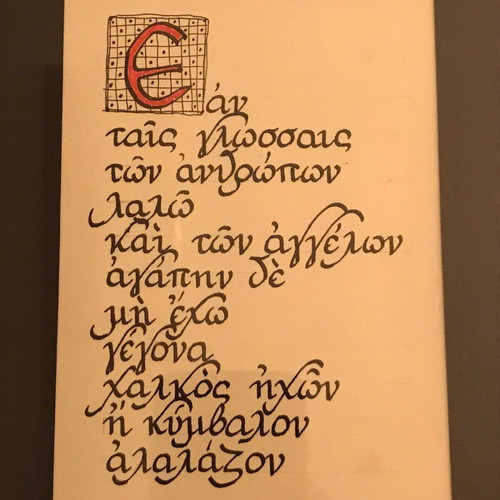 Εάν
ταῖς γλώσσαις
τῶν ἀνθρώπων
λαλῶ
καὶ τῶν ἀγγέλων
ἀγάπην δὲ
μὴ ἔχω
γέγονα
χαλκὸς ἠχῶν
ἢ κύμβαλον
ἀλαλάζον